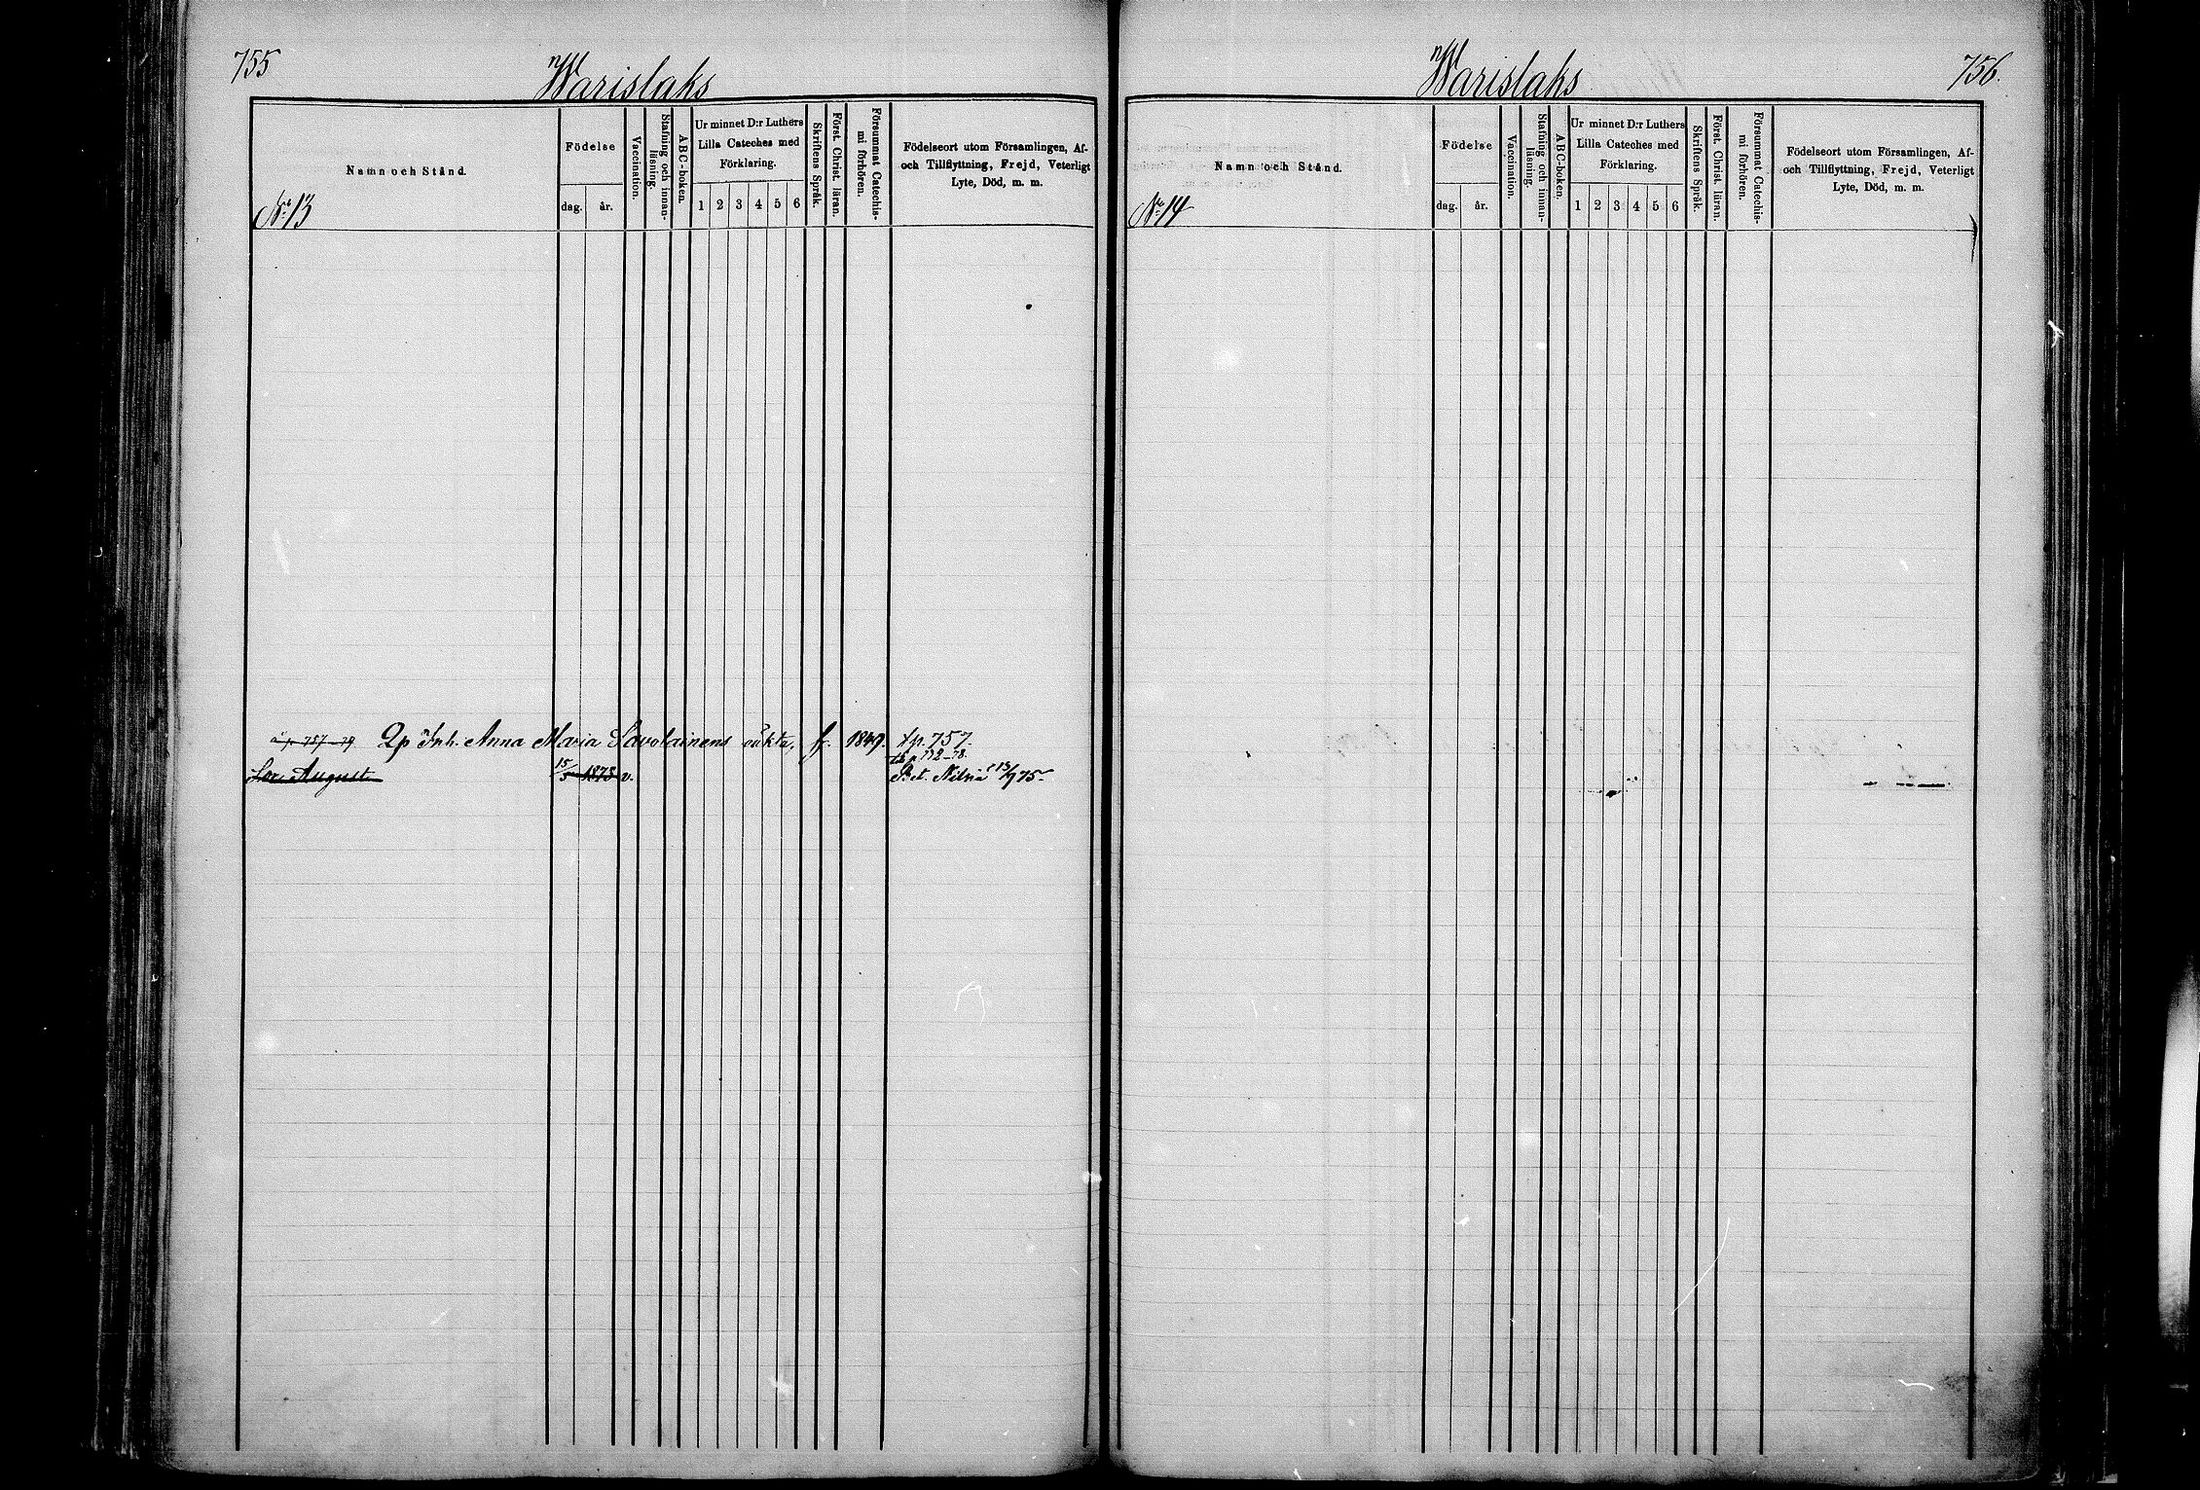 755
Warislaks
Namn och Stånd.
No 13
Födelse
dag.
år.
Vaccination.
Stafning och innanläsning.
ABC-boken.
Ur minnet D:r Luthers
Lilla Cateches med
Förklaring.
1 2 3 4 5 6
Skriftens Språk.
Först. Christ. läran.
Försummat Catechis-
mi förhören.
Födelseort utom Församlingen, Af-
och Tillflyttning, Frejd, Veterligt
Lyte, Död, m. m.
p. 757-79 Qp Inh. Anna Maria Savolainens oäkta, f. 1849. p. 757.
p. 772-78.
August 15/5 1873 v. Bet. 13/9 75
Warislaks
756.
Namn och Stånd.
No 14
Födelse
dag.
år.
Vaccination.
Stafning och innanläsning.
ABC-boken.
Ur minnet D:r Luthers
Lilla Cateches med
Förklaring.
1 2 3 4 5 6
Skriftens Språk.
Först. Christ. läran.
Försummat Catechis-
mi förhören.
Födelseort utom Församlingen, Af-
och Tillflyttning, Frejd, Veterligt
Lyte, Död, m. m.